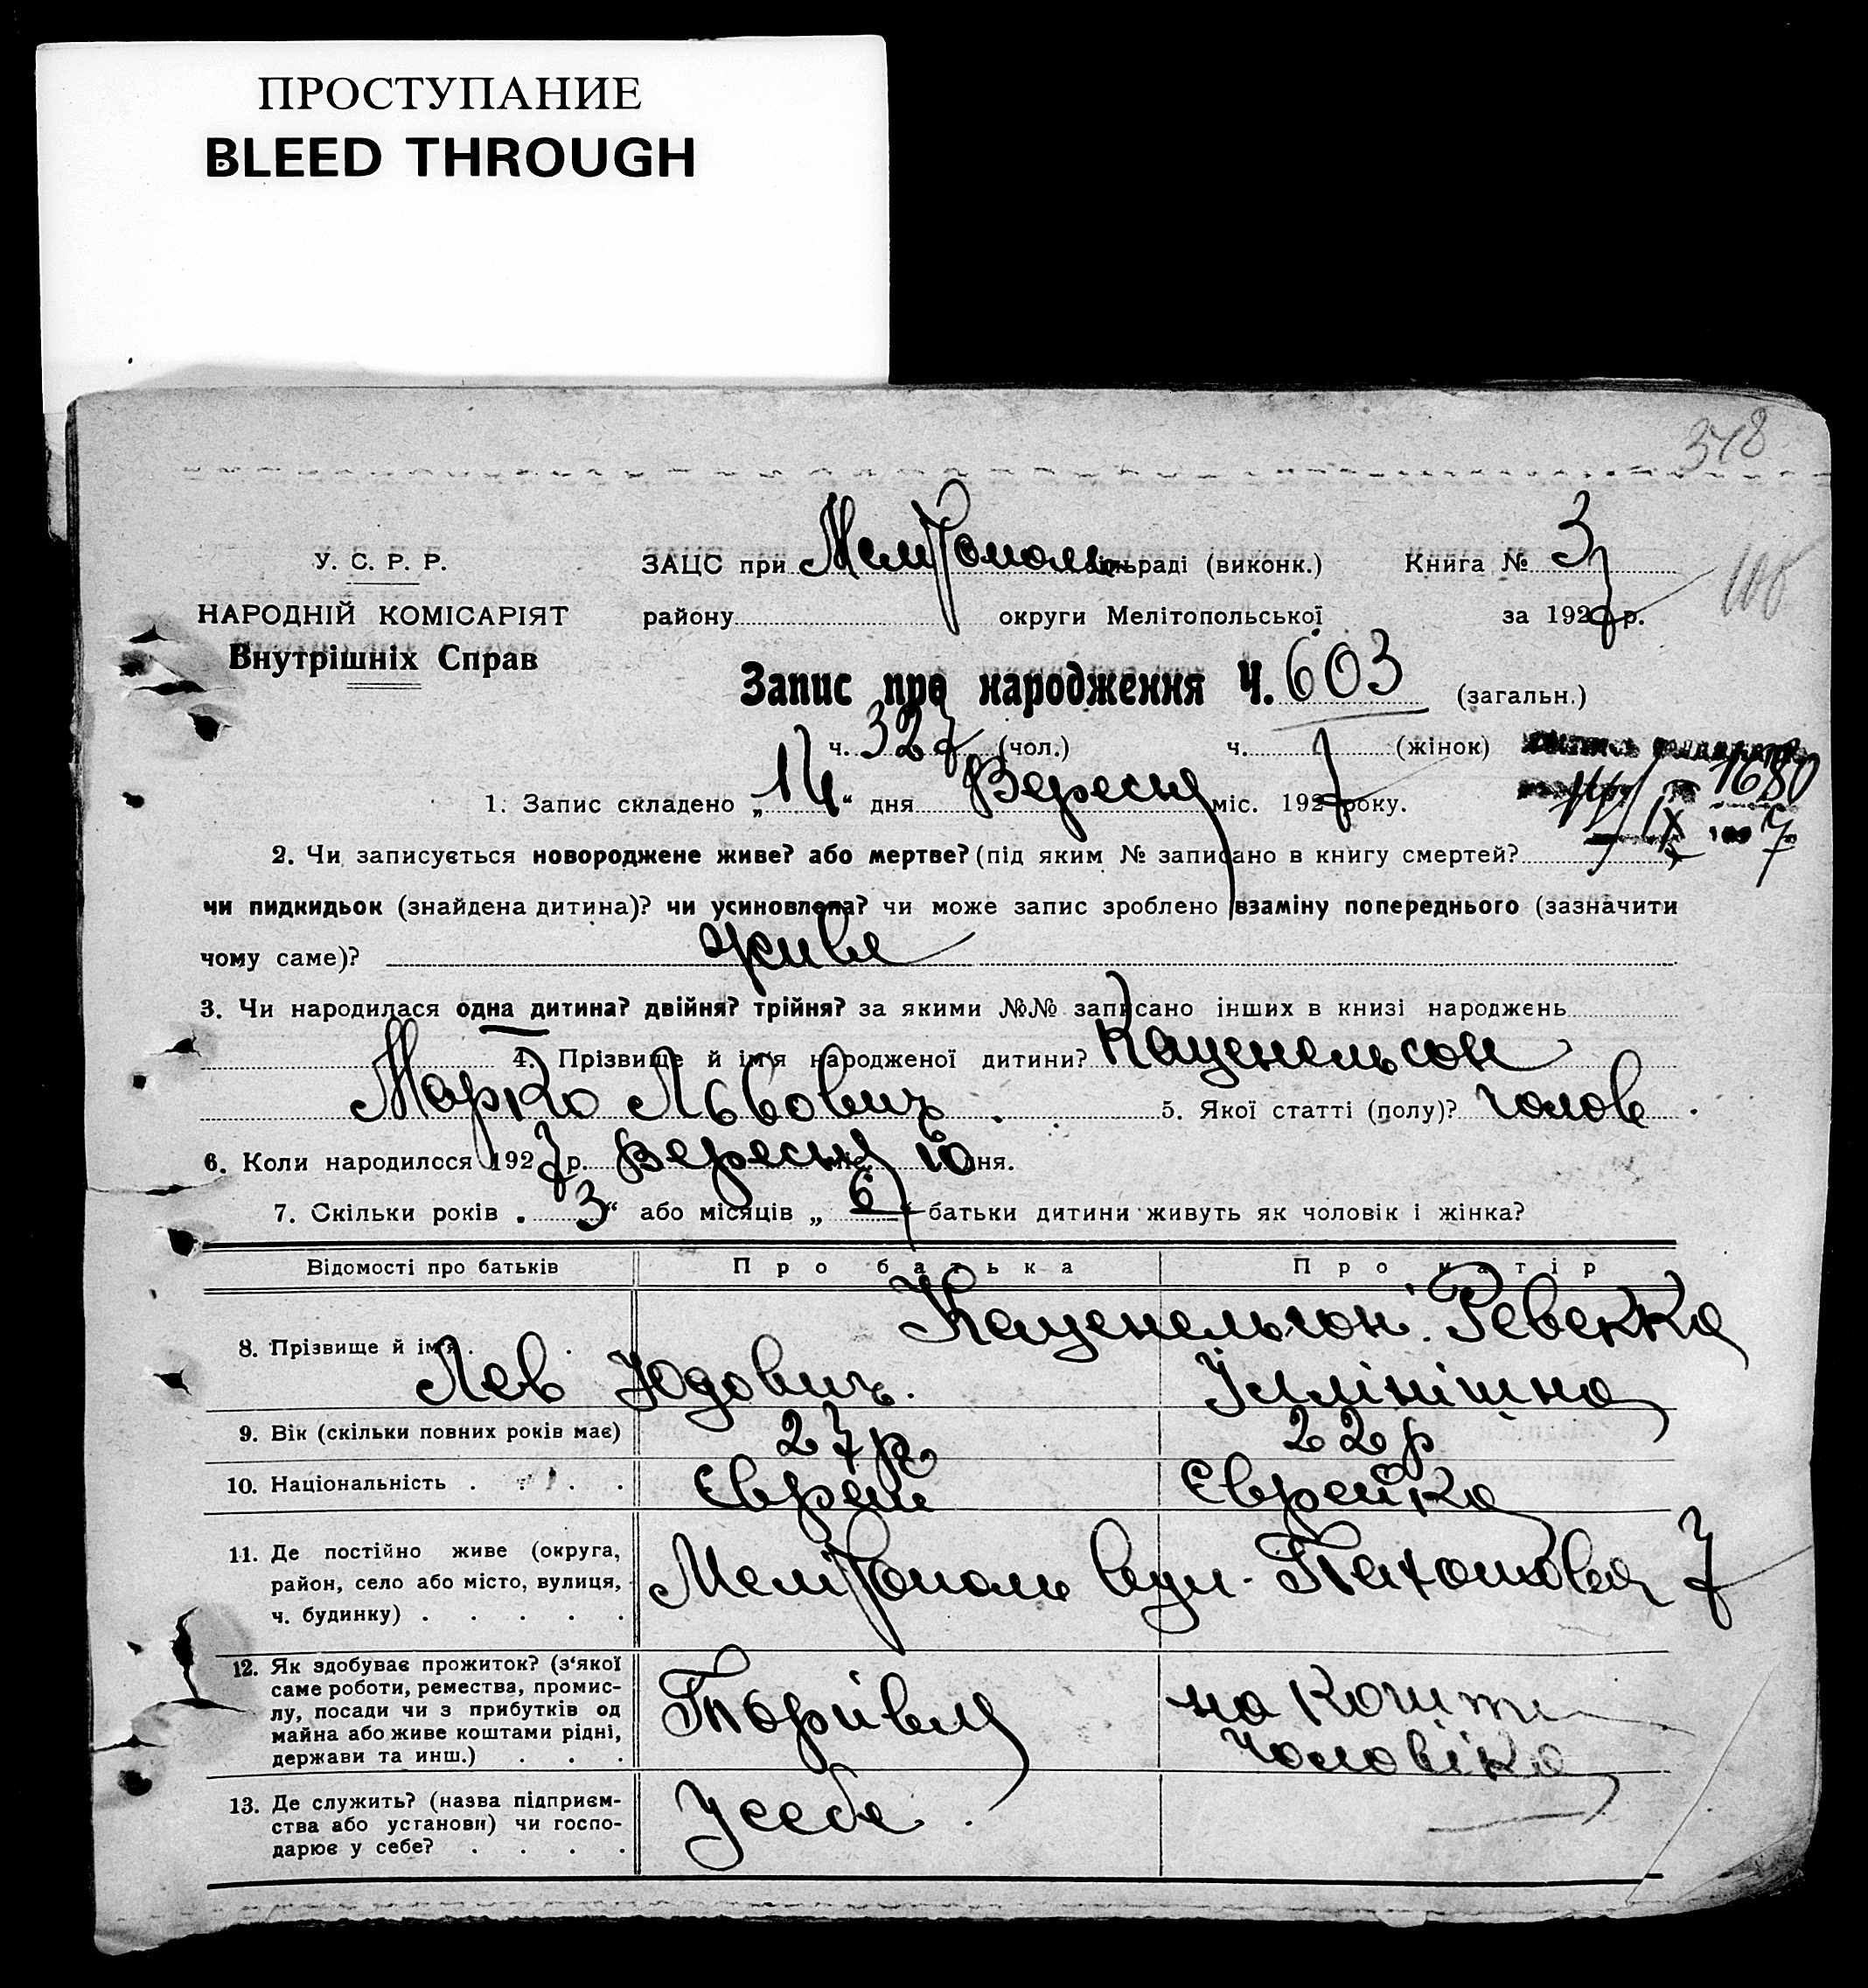 ПРОСТУПАНИЕ
BLEED THROUGH
378
У. С. Р. Р.
ЗАЦС при Мелітополь міськраді (виконк.) Книга № 3
НАРОДНІЙ КОМІСАРІЯТ
району округи Мелітопольської за 1927 р.
Внутрішніх Справ
Запис про народження Ч. 603 (загальн.)
ч. 327 (чол.) ч. (жінок)
1. Запис складено „14“ дня Вересня міс. 1927 року.
1680
14/IX 7
2. Чи записується новороджене живе? або мертве? (під яким № записано в книгу смертей?
чи пидкидьок (знайдена дитина)? чи усиновлена? чи може запис зроблено взаміну попереднього (зазначити
чому саме)? живе
3. Чи народилася одна дитина? двійня? трійня? за якими №№ записано інших в книзі народжень
4. Прізвище й ім'я народженої дитини? Каценельсон
Марко Львович. 5. Якої статті (полу)? чолов.
6. Коли народилося 1927 р. Вересня міс. 10 дня.
7. Скільки років „3“ або місяців „6“ батьки дитини живуть як чоловік і жінка?
Відомості про батьків Про батька Про матір
8. Прізвище й ім'я . . Каценельсон Ревекка
Лев Юдович.
9. Вік (скільки повних років має) 27 р. 22 р
10. Національність . . . . Єврей Єврейка
11. Де постійно живе (округа,
район, село або місто, вулиця,
ч. будинку) . . . . . Мелітополь вул. 7
12. Як здобуває прожиток? (з'якої
саме роботи, ремества, промис-
лу, посади чи з прибутків од
майна або живе коштами рідні,
держави та инш.) . . . Торгівля на кошти
чоловіка
13. Де служить? (назва підприєм-
ства або установи) чи госпо-
дарює у себе? . . . . У себе.